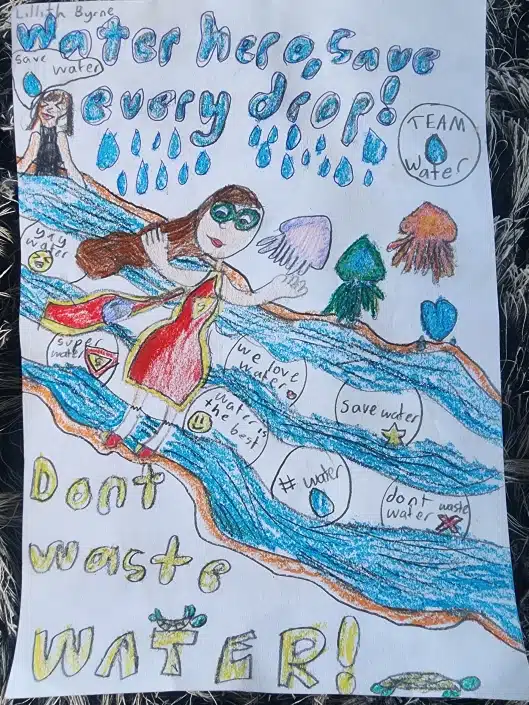 Lillith Byrne
Water hero, save
every drop!
save water
TEAM
water
yay
water
super
water
we love
water
save water
water is
the best
# water
dont waste
water
Dont
waste
WATER!